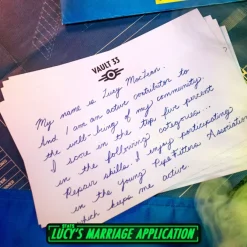 VAULT 33
My name is Lucy MacLean.
And I am an active contributor to
the well-being of my community.
I score in the top five percent
in the following categories..
Repair skills. I enjoy participating
in the Young Pips Association
which keeps me active.
STATS
LUCY'S MARRIAGE APPLICATION